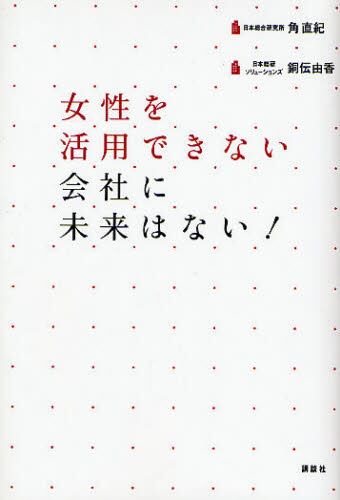 日本総合研究所 角直紀
日本総研
ソリューションズ 銅伝由香
女性を
活用できない
会社に
未来はない!
講談社